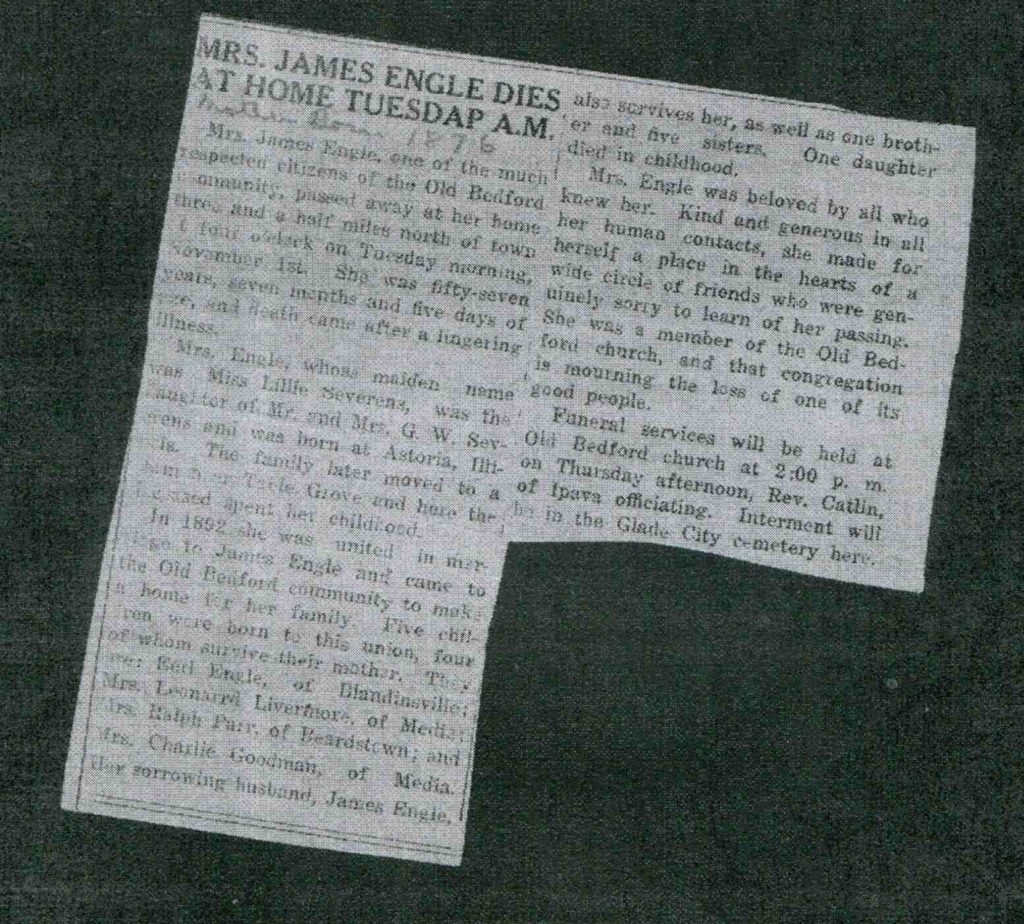 MRS. JAMES ENGLE DIES
AT HOME TUESDAP A.M.
1876
Mrs. James Engle, one of the much
respected citizens of the Old Bedford
ommunity, passed away at her home
three and a half miles north of town
t four o'clock on Tuesday morning,
November 1st. She was fifty-seven
years, seven months and five days of
age, and death came after a lingering
illness.
Mrs. Engle, whose maiden name
was Miss Lillie Severens, was the
daughter of Mr. and Mrs. G. W. Sev-
erens and was born at Astoria, Illi-
is. The family later moved to a
Table Grove and here the
spent her childhood.
In 1892 she was united in mar-
riage to James Engle and came to
the Old Bedford community to make
a home for her family. Five chil-
ren were born to this union, four
of whom survive their mother. They
Earl Engle, of Blandinsville;
Mrs. Leonard Livermore, of Media;
Mrs. Ralph Parr, of Beardstown; and
Mrs. Charlie Goodman, of Media.
Her sorrowing husband, James Engle,
also survives her, as well as one broth-
er and five sisters. One daughter
died in childhood.
Mrs. Engle was beloved by all who
knew her. Kind and generous in all
her human contacts, she made for
herself a place in the hearts of a
wide circle of friends who were gen-
uinely sorry to learn of her passing.
She was a member of the Old Bed-
ford church, and that congregation
is mourning the loss of one of its
good people.
Funeral services will be held at
Old Bedford church at 2:00 p. m.
on Thursday afternoon, Rev. Catlin,
of Ipava officiating. Interment will
be in the Glade City cemetery here.